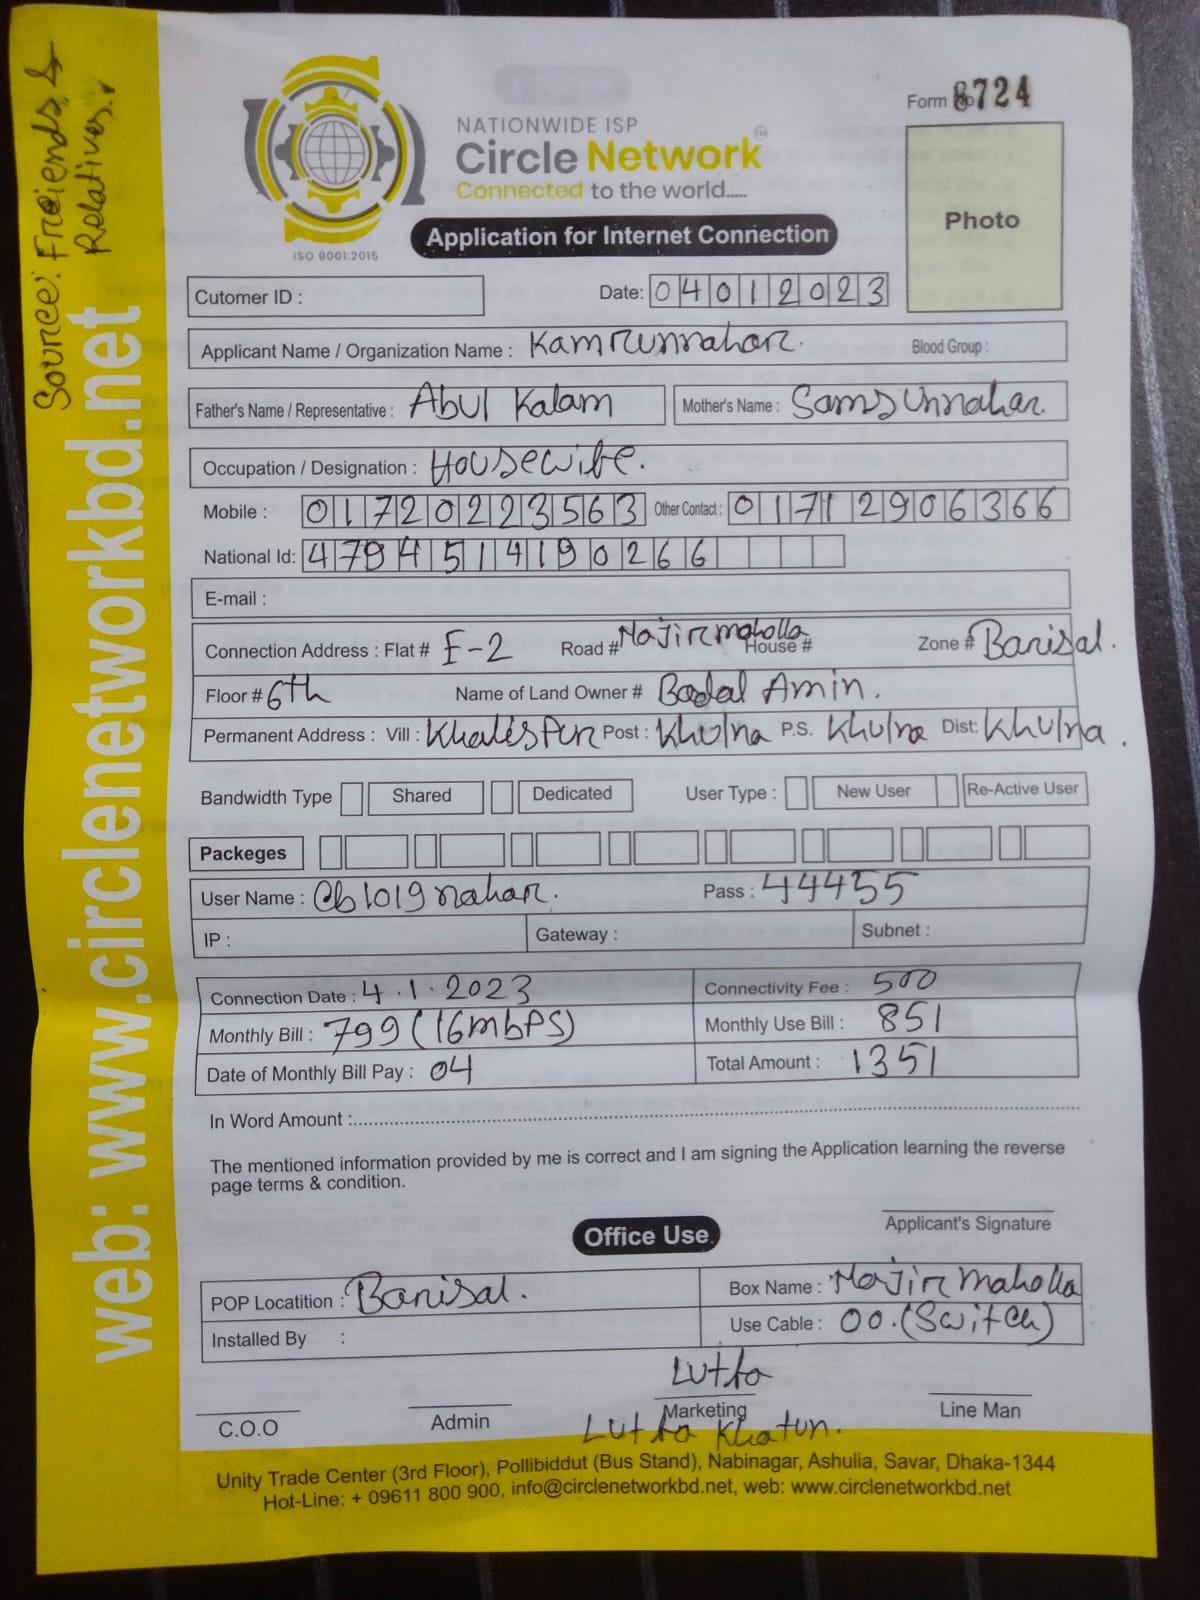 Source: Freiends &
Relatives.
web: www.circlenetworkbd.net
Form No 8724
NATIONWIDE ISP
Circle Network TM
Connected to the world.....
ISO 9001:2015
Application for Internet Connection
Photo
Cutomer ID :
Date: 04012023
Applicant Name / Organization Name : Kamrunnahar. Blood Group :
Father's Name / Representative : Abul Kalam Mother's Name : Samsunnahar.
Occupation / Designation : Housewife.
Mobile : 01720223563 Other Contact : 01712906366
National Id: 4794514190266
E-mail :
Connection Address : Flat # F-2 Road # Najirmaholla House # Zone # Barisal.
Floor # 6th Name of Land Owner # Badal Amin.
Permanent Address : Vill : Khalispur Post : Khulna P.S. Khulna Dist: Khulna.
Bandwidth Type Shared Dedicated User Type : New User Re-Active User
Packeges
User Name : Cb1019nahar. Pass : 44455
IP : Gateway : Subnet :
Connection Date : 4.1.2023 Connectivity Fee : 500
Monthly Bill : 799 (16mbPS) Monthly Use Bill : 851
Date of Monthly Bill Pay : 04 Total Amount : 1351
In Word Amount :
The mentioned information provided by me is correct and I am signing the Application learning the reverse
page terms & condition.
Applicant's Signature
Office Use
POP Locatition : Barisal. Box Name : Najir Maholla
Installed By : Use Cable : 00.(Switch)
Lutfa
C.O.O Admin Marketing Line Man
Lutfa Khatun.
Unity Trade Center (3rd Floor), Pollibiddut (Bus Stand), Nabinagar, Ashulia, Savar, Dhaka-1344
Hot-Line: + 09611 800 900, info@circlenetworkbd.net, web: www.circlenetworkbd.net